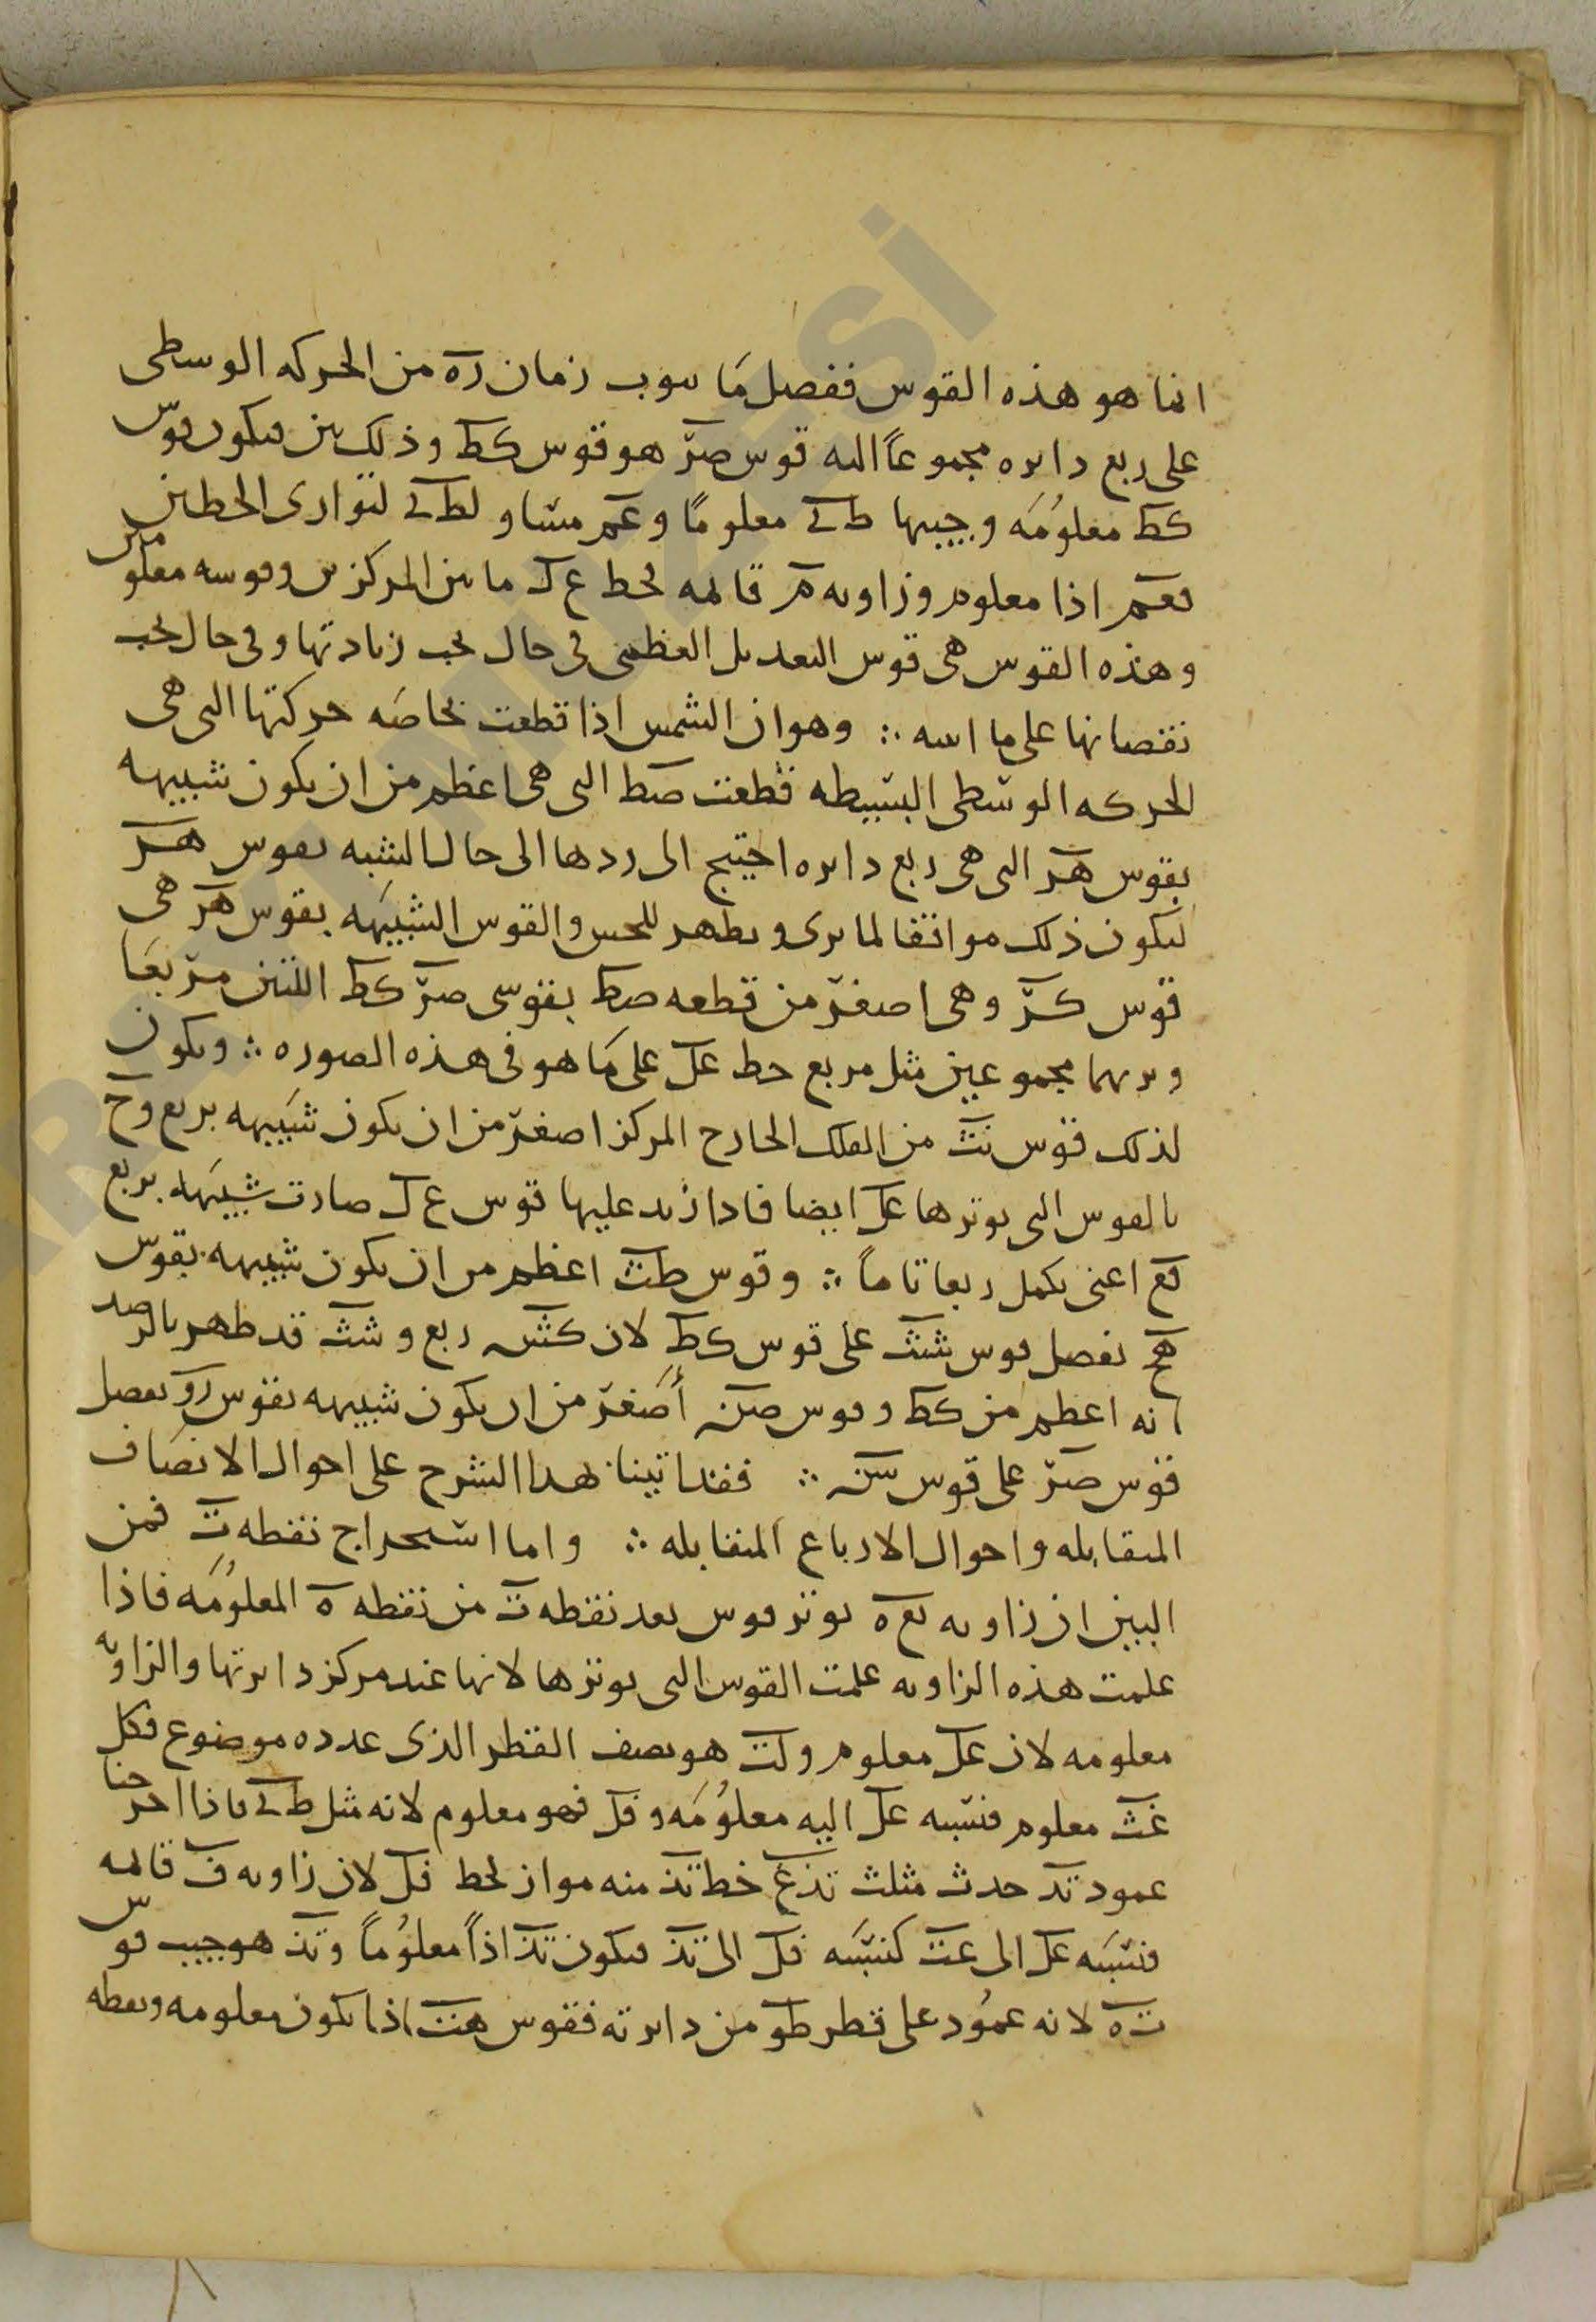 انما هو هذه القوس ففصل ما ىىوب زمان ره من الحركه الوسطى
على ربع دايره مجموعاً اليه قوس صر هو قوس كط وذلك بين فيكون قوس
كط معلُومَه وجيبها طى معلومًا وعم مساو لطى لتوازى الخطين
فعم اذا معلوم وزاويه م قايمه فخط ع ل ما بين المركزين وقوسه معلومين
وهذه القوس هى قوس التعديل العظمى فى حال يجب زيادتها وفى حال يجب
نقصانها على ما ابينه ∴ وهو ان الشمس اذا قطعت بخاصَه حركتها التى هى
الحركه الوسطى البسيطه قطعت صط التى هى اعظم من ان يكون شبيهه
بقوس هر التى هى ربع دايره احتيج الى ردها الى حال الشبه بقوس هر
ليكون ذلك موافقا لما يرى ويظهر للحس والقوس الشبيهَه بقوس هر هى
قوس كر وهى اصغر من قطعه صط بقوسى صر كط اللتين مربعَا
وتريهما مجموعين مثل مربع خط عل على مَا هو فى هذه الصوره ∴ ويكون
لذلك قوس نث من الفلك الخارج المركز اصغر من ان يكون شبيهه بربع وح
بالقوس التى يوترها عل ايضا فاذا زيد عليها قوس ع ل صارت شبيهَه بربع
فع اعنى يكمل ربعا تاماً ∴ وقوس طث اعظم من ان يكون شبيهه بقوس
هح بفضل قوس شث على قوس كط لان كش ربع وشث قد ظهر بالرصد
انه اعظم من كط وقوس صن أَصغر من ان يكون شبيهه بقوس رو بفضل
قوس صر على قوس سن ∴ فقد اتينا بهذا الشرح على احوال الانصَاف
المتقابله واحوال الارباع المتقابله ∴ واما استخراج نقطه ت فمن
البين ان زاويه تع ه يوتر قوس بعد نقطه ت من نقطه ه المعلُومَه فاذا
علمت هذه الزاويه علمت القوس التى يوترها لانها عند مركز دايرتها والزاويه
معلومه لان عل معلوم ولت هو نصف القطر الذى عدده موضوع فكل
عت معلوم فنسبه عل اليه معلُومَه وفل فهو معلوم لانه مثل طى فاذا اخرجنا
عمود تذ حدث مثلث تذع خط تذ منه مواز لخط فل لان زاويه ف قايمه
فنسبَه عل الى عت كنسبَه فل الى تذ فيكون تذ اذاً معلُوماً وتذ هو جيب قوس
ت ه لانه عمُود على قطر طو من دايرته فقوس هت اذا يكون معلومه ونقطه